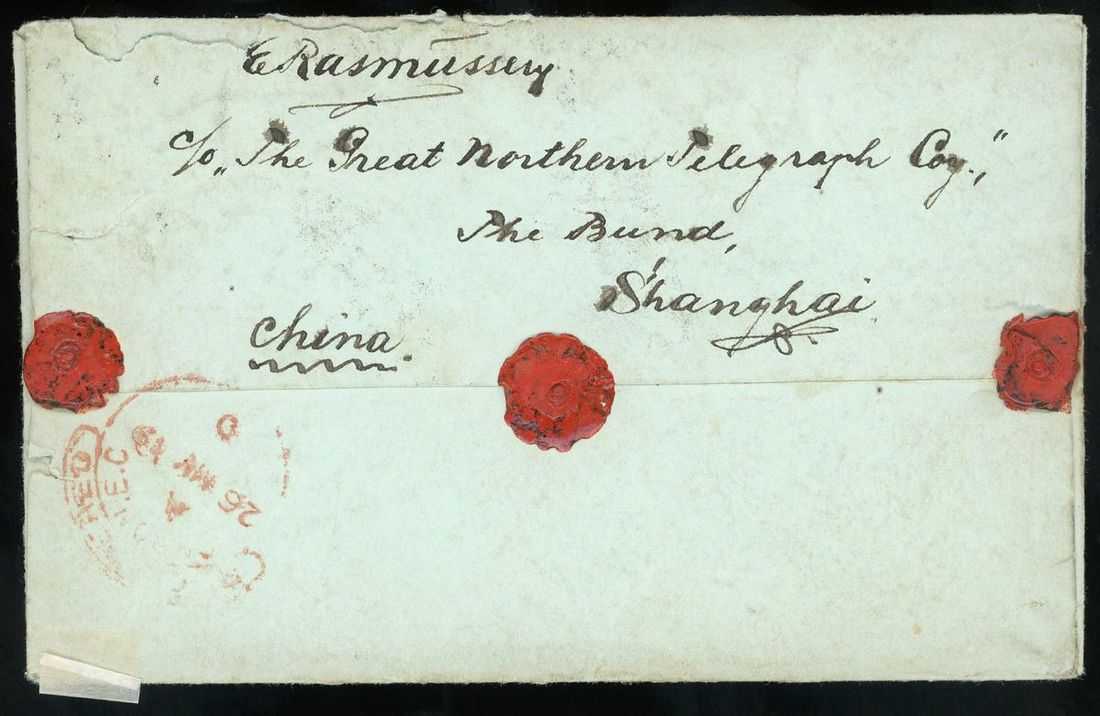 E Rasmussen
c/o „The Great Northern Telegraph Coy.,"
The Bund,
Shanghai
China.
26 MR
4